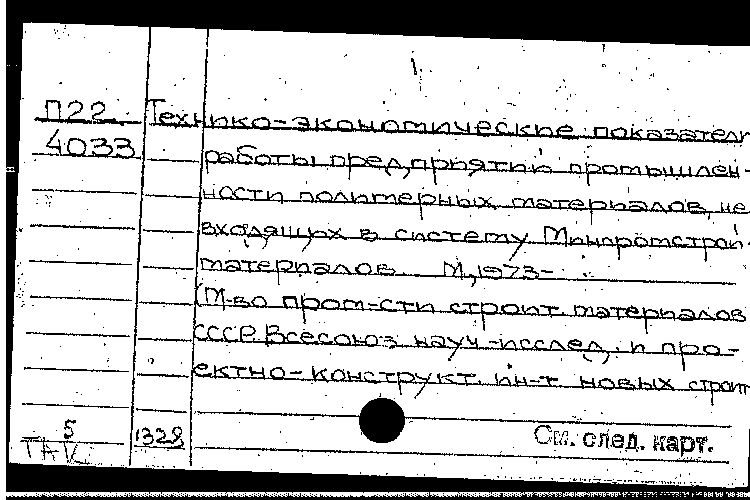 П22 Технико-экономические показатели
4033 работы предприятий промышлен-
ности полимерных материалов, не
входящих в систему Минпромстрой-
материалов. М., 1973-
(М-во пром-сти строит. материалов
СССР. Всесоюз. науч.-исслед. и про-
ектно-конструкт. ин-т новых строит.
5 1328 См. след. карт.